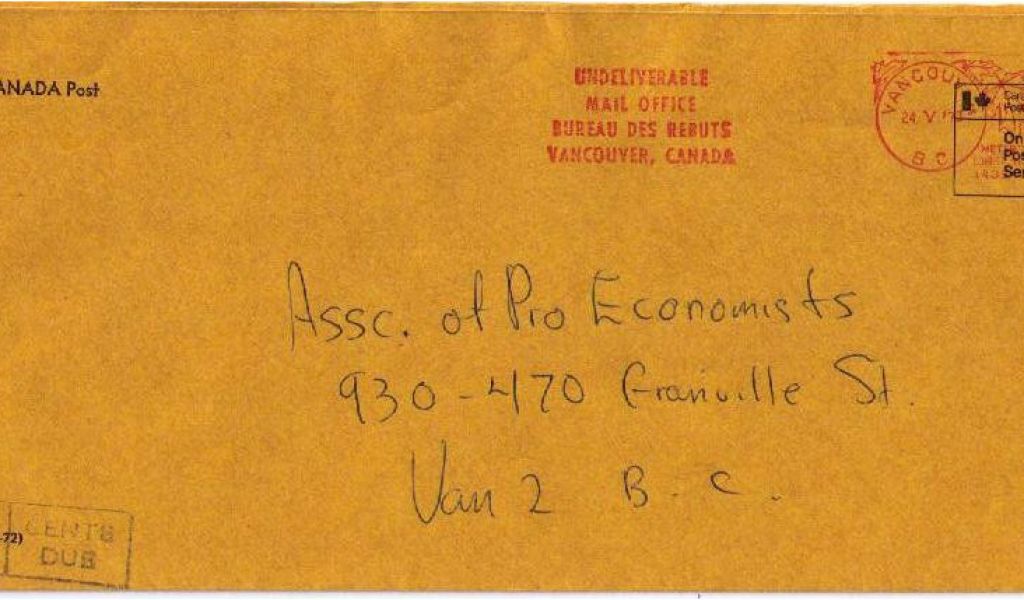 ANADA Post
UNDELIVERABLE
MAIL OFFICE
BUREAU DES REBUTS
VANCOUVER, CANADA
VANCOU
24 V
B C
On
Pos
Ser
Assc. of Pro Economists
930-470 Granville St.
Van 2 B.C.
-72)
CENTS
DUE